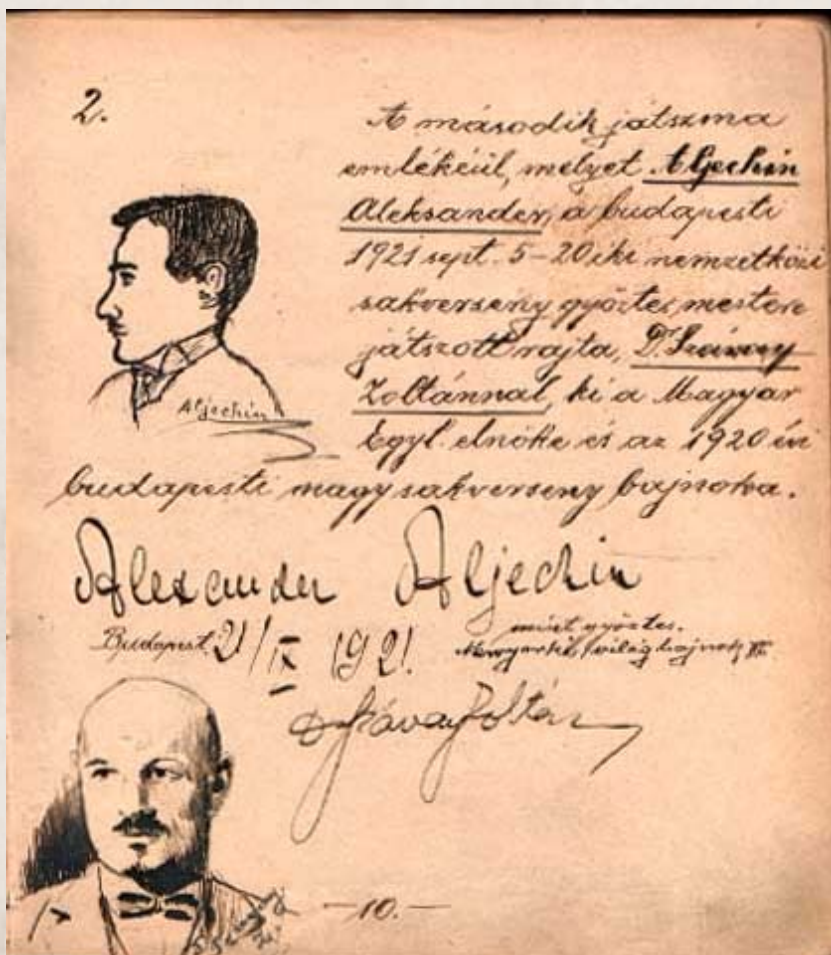 2.
A második játszma
emlékéül, melyet Aljechin
Aleksander, a budapesti
1921 sept. 5-20 iki nemzetközi
sakverseny győztes mestere
játszott rajta, Dr
Zoltánnal, ki a Magyar
Egyl. elnöke és az 1920 évi
budapesti nagy sakverseny bajnoka.
Aljechin
Alexander Aljechin
mint győztes.
Budapest. 21/IX 1921.
világbajnok
Zoltán
-10.-